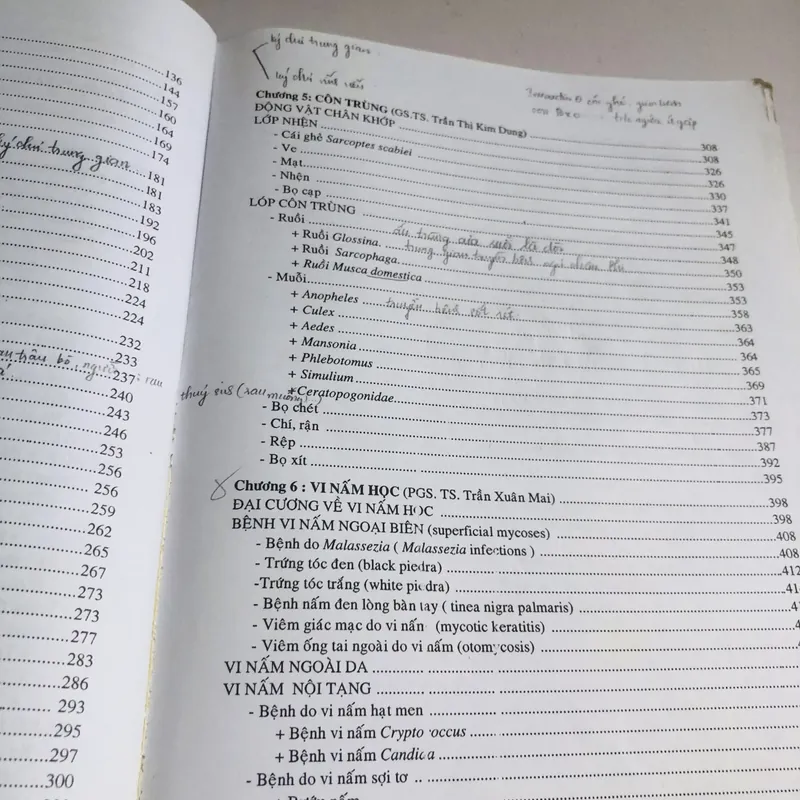 136
144
157
160
164
169
174
ký chủ trung gian
181
181
183
192
196
202
211
218
224
224
232
233
237
240
243
246
253
256
256
259
262
265
267
273
273
277
283
286
293
295
297
300
ký chủ trung gian
ký chủ vĩnh viễn
Chương 5: CÔN TRÙNG (GS.TS. Trần Thị Kim Dung)
ĐỘNG VẬT CHÂN KHỚP 308
LỚP NHỆN 308
- Cái ghẻ Sarcoptes scabiei 326
- Ve 326
- Mạt 330
- Nhện 337
- Bọ cạp 341
LÓP CÔN TRÙNG 345
- Ruồi 347
ấu trùng của ruồi là dòi
+ Ruồi Glossina 348
+ Ruồi Sarcophaga 350
+ Ruồi Musca domestica 353
- Muỗi 353
+ Anopheles 358
truyền bệnh sốt rét
+ Culex 363
+ Aedes 364
+ Mansonia 364
+ Phlebotomus 365
+ Simulium 369
+ Ceratopogonidae 371
- Bọ chét 373
- Chí, rận 377
- Rệp 387
- Bọ xít 392
395
Chương 6 : VI NẤM HỌC (PGS. TS. Trần Xuân Mai) 398
ĐẠI CƯƠNG VỀ VI NẤM HỌC 398
BỆNH VI NẤM NGOẠI BIÊN (superficial mycoses) 408
- Bệnh do Malassezia ( Malassezia infections ) 408
- Trứng tóc đen (black piedra) 412
-Trứng tóc trắng (white piedra)
- Bệnh nấm đen lòng bàn tay ( tinea nigra palmaris)
- Viêm giác mạc do vi nấm (mycotic keratitis)
- Viêm ống tai ngoài do vi nấm (otomycosis)
VI NẤM NGOÀI DA
VI NẤM NỘI TẠNG
- Bệnh do vi nấm hạt men
+ Bệnh vi nấm Cryptococcus
+ Bệnh vi nấm Candida
- Bệnh do vi nấm sợi tơ